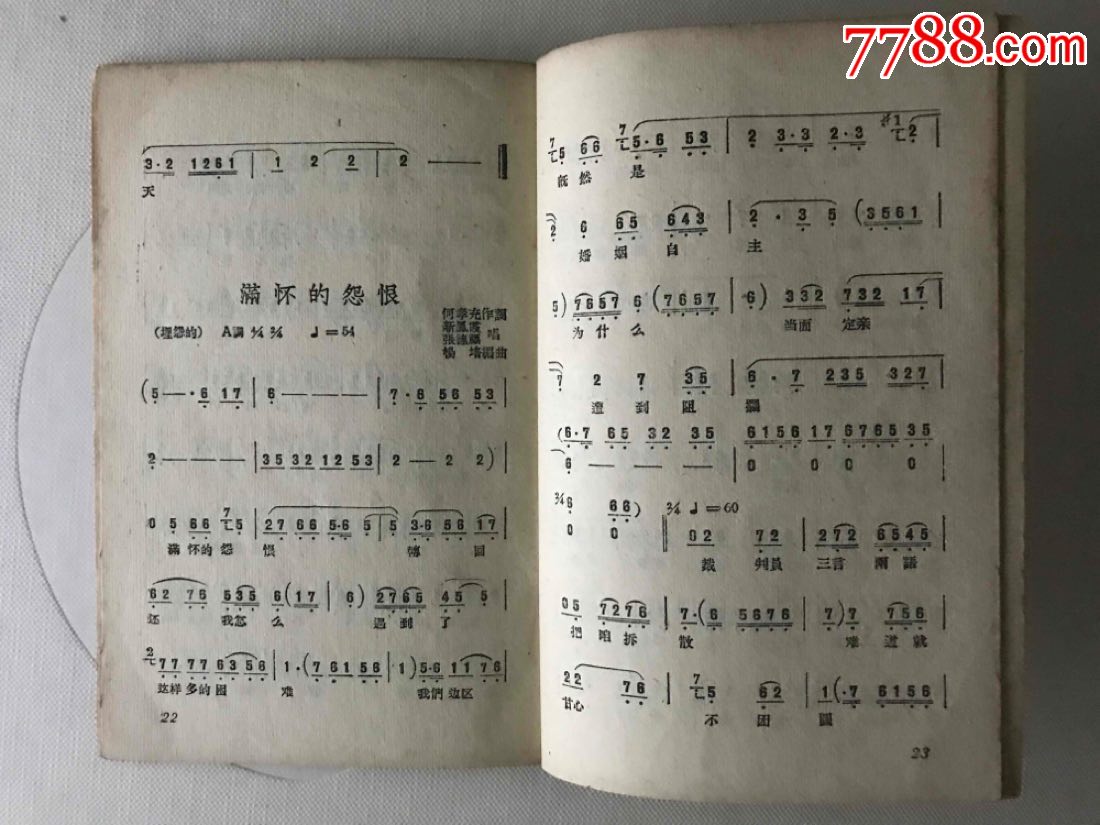 7788.com
3·2 1261 | 1 2 2 | 2 — —
天
滿怀的怨恨
(埋怨的) A調 ♩=54
作詞
唱
編曲
(5 — ·6 17 | 6 — — — | 7·6 56 53
2 — — — | 35 32 12 53 | 2 — 2 2)
0 5 66 5 | 27 66 5·6 5 | 5 3·6 56 17
滿怀的怨 恨 轉回
62 76 535 6(17 | 6) 2765 45 5
还 我怎么 遇到了
77 77 6356 | 1·(7 6156 | 1) 5·6 11 76
这样多的困 难 我們边区
22
5 66 5·6 53 | 2 3·3 2·3 2
既然是
2 6 65 643 | 2·3 5 (3561
婚姻自主
5) 7657 6 (7657 | 6) 332 732 17
为什么 当面定亲
7 2 7 35 | 6·7 235 327
遭到阻攔
(6·7 65 32 35 | 6156 17 6765 35
6 — — — | 0 0 0 0
3/4 6 66) 3/4 ♩=60
0 0 02 72 | 272 6545
裁判員 三言兩語
05 7276 | 7·(6 5676 | 7) 7 756
把咱拆散 难道就
22 76 | 5 62 | 1(·7 6156
甘心 不団圓
23